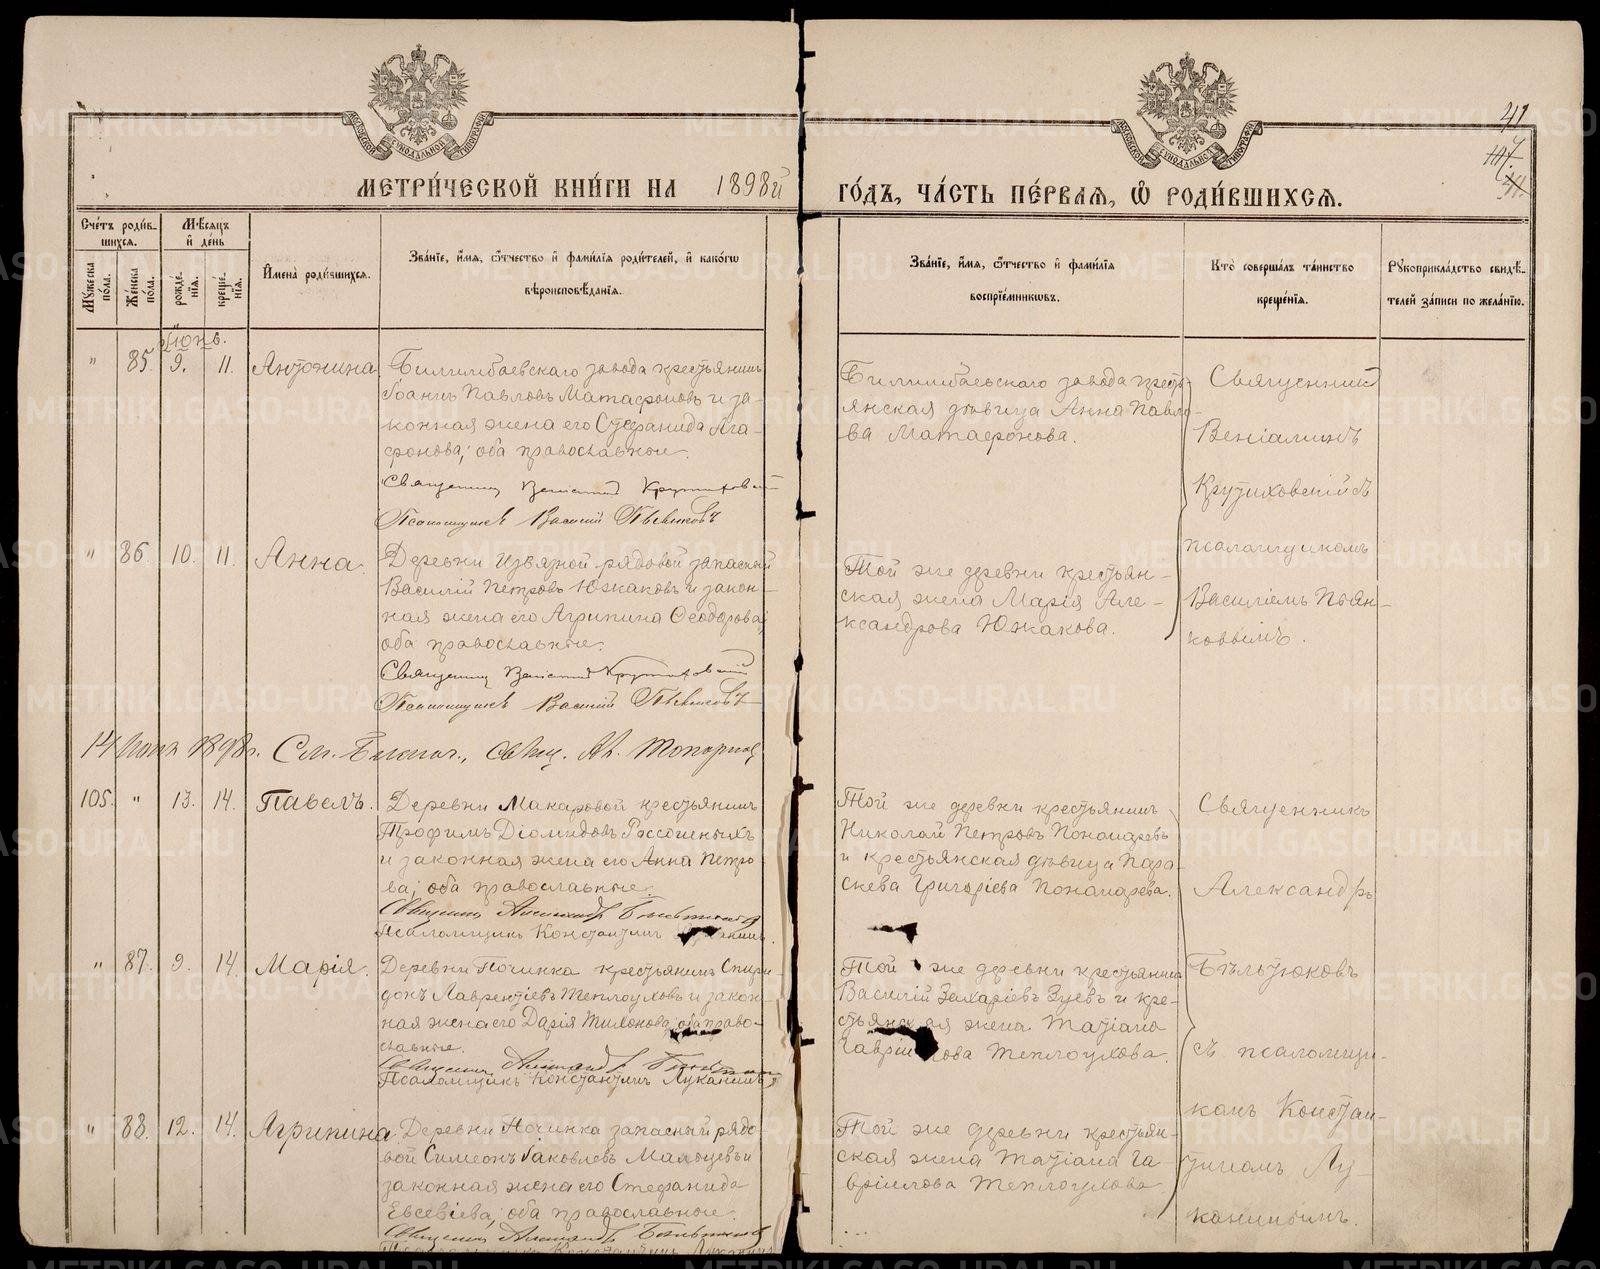 МОСКОВСКОЙ СѴНОДАЛЬНОЙ ТИПОГРАФІИ
МОСКОВСКОЙ СѴНОДАЛЬНОЙ ТИПОГРАФІИ
41
МЕТРИ́ЧЕСКОЙ КНИ́ГИ НА 1898й
ГО́ДЪ, ЧА́СТЬ ПЕ́РВАЯ, Ѡ҆ РОДИ́ВШИХСЯ.
Сче́тъ роди́в-
шихся.
Мꙋжеска по́ла.
Же́нска по́ла.
Мѣ́сяцъ
и҆ де́нь
рожде́-
нїя.
креще́-
нїя.
И҆мена̀ роди́вшихся.
Зва́нїе, и҆́мя, ѻ҆́тчество и҆ фами́лїя роди́телей, и҆ како́гѡ
вѣроисповѣ́данїя.
Зва́нїе, и҆́мя, ѻ҆́тчество и҆ фами́лїя
воспрїе́мникѡвъ.
Кто̀ соверша́лъ та́инство
креще́нїя.
Рꙋкоприкла́дство свидѣ́-
телей за́писи по жела́нїю.
Іюнь.
" 85. 9. 11. Антонина
Билимбаевскаго завода крестьянинъ
Іоаннъ Павловъ Матафоновъ и за-
конная жена его Стефанида Ага-
фонова; оба православные.
Священникъ Веніаминъ Крутиховскій
Псаломщикъ Василій Пьянковъ
Билимбаевскаго завода кресть-
янская дѣвица Анна Павло-
ва Матафонова.
Священникъ
Веніаминъ
Крутиховскій съ
псаломщикомъ
Василіемъ Пьян-
ковымъ.
" 86. 10. 11. Анна.
Деревни Извязной рядовой запасный
Василій Петровъ Южаковъ и закон-
ная жена его Агрипина Ѳеодорова;
оба православные.
Священникъ Веніаминъ Крутиховскій
Псаломщикъ Василій Пьянковъ
Той же деревни крестьян-
ская жена Марія Але-
ксандрова Южакова.
14 Іюня 1898 г. См. Благоч., Свящ. Ал. Топорков
105. " 13. 14. Павелъ.
Деревни Макаровой крестьянинъ
Трофимъ Діомидовъ Россошныхъ
и законная жена его Анна Петро-
ва; оба православные.
Священникъ Александръ Бѣльтюковъ
Псаломщикъ Константинъ Луканинъ.
Той же деревни крестьянинъ
Николай Петровъ Пономаревъ
и крестьянская дѣвица Пара-
скева Григоріева Пономарева.
Священникъ
Александръ
Бѣльтюковъ
съ псаломщи-
комъ Констан-
тиномъ Лу-
канинымъ.
" 87. 9. 14. Марія.
Деревни Починка крестьянинъ Спири-
донъ Лаврентіевъ Теплоуховъ и закон-
ная жена его Дарія Тихонова; оба право-
славные.
Священникъ Александръ Бѣльтюковъ
Псаломщикъ Константинъ Луканинъ.
Той же деревни крестьянинъ
Василій Захаріевъ Зуевъ и кре-
стьянская жена Татіана
Гавріилова Теплоухова.
" 88. 12. 14. Агрипина
Деревни Починка запасный рядо-
вой Симеонъ Іаковлевъ Мальцевъ и
законная жена его Стефанида
Евсевіева, оба православные.
Священникъ Александръ Бѣльтюковъ
Псаломщикъ Константинъ Луканинъ
Той же деревни крестьян-
ская жена Татіана Га-
вріилова Теплоухова
METRIKI.GASO-URAL.RU